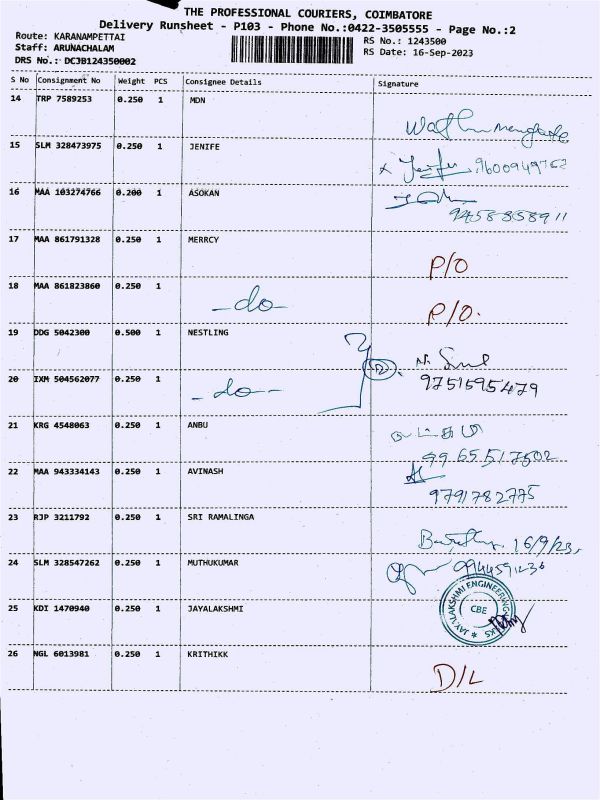 THE PROFESSIONAL COURIERS, COIMBATORE
Delivery Runsheet - P103 - Phone No.:0422-3505555 - Page No.:2
Route: KARANAMPETTAI
Staff: ARUNACHALAM
DRS No.: DCJB124350002
RS No.: 1243500
RS Date: 16-Sep-2023
S No Consignment No Weight PCS Consignee Details Signature
14 TRP 7589253 0.250 1 MDN
15 SLM 328473975 0.250 1 JENIFE
9600949762
16 MAA 103274766 0.200 1 ASOKAN
9458858911
17 MAA 861791328 0.250 1 MERRCY
P/O
18 MAA 861823860 0.250 1 -do- P/O.
19 DDG 5042300 0.500 1 NESTLING
9751595479
20 IXM 504562077 0.250 1 -do-
21 KRG 4548063 0.250 1 ANBU
9965517502
22 MAA 943334143 0.250 1 AVINASH
9791782775
23 RJP 3211792 0.250 1 SRI RAMALINGA
16/9/23,
24 SLM 328547262 0.250 1 MUTHUKUMAR
9944591236
25 KDI 1470940 0.250 1 JAYALAKSHMI
JAYLAKSHMI ENGINEERING
CBE
26 NGL 6013981 0.250 1 KRITHIKK
D/L